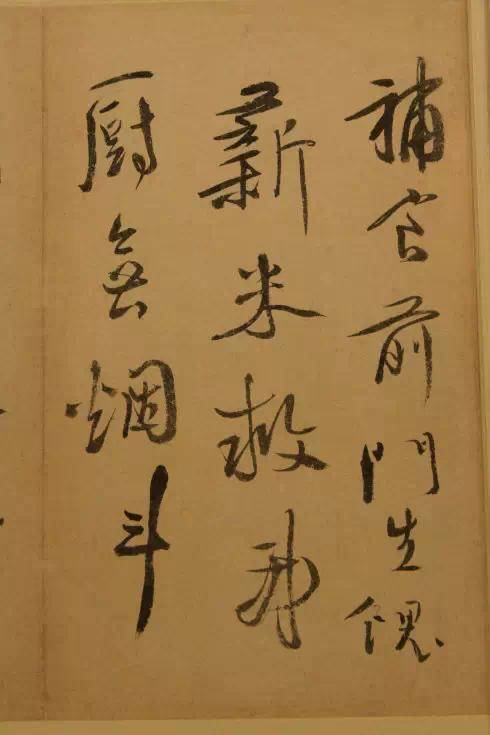 補官前門生餽
薪米救
厨無烟斗